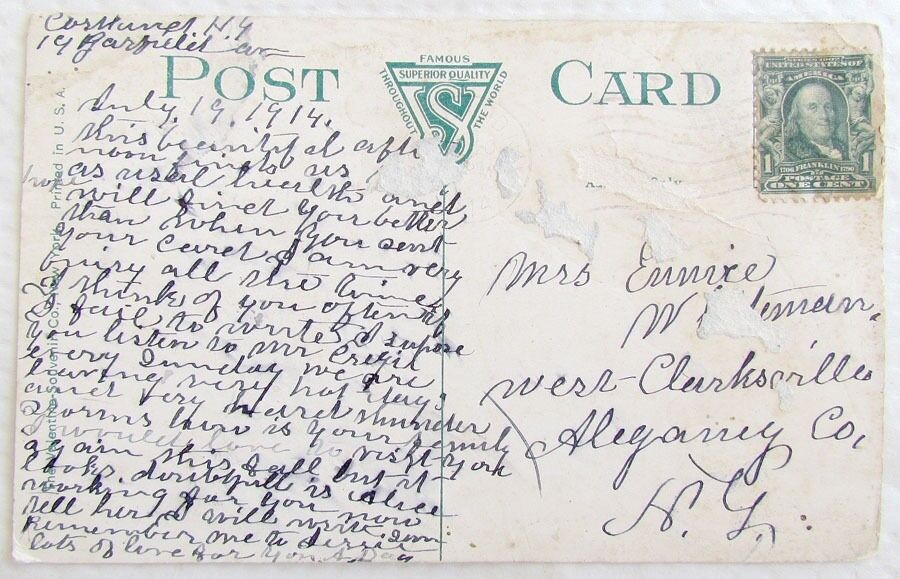 Cortland N.Y
19 Garfield
POST CARD
FAMOUS
SUPERIOR QUALITY
THROUGHOUT THE WORLD
July. 19. 1914.
this beautiful aft
noon finds us
as usual health and
will find you better
than when you sent
your card I am very
busy all the time
think of you often
fail to write I supose
you listen to Mr
every Sunday we are
having very hot days
and very hard thunder
storms how is your family
I would love to visit York
again this fall but it
looks doubtfull is
working for you now
tell her I will write
Remember me to
lots of love for you
Printed in U. S. A.
The Valentine-Souvenir Co., New York.
SERIES 1902
UNITED STATES OF
AMERICA
1706 FRANKLIN 1790
1 POSTAGE
ONE CENT
Mrs Eunice
West-Clarksville
Alegany Co,
N. Y.